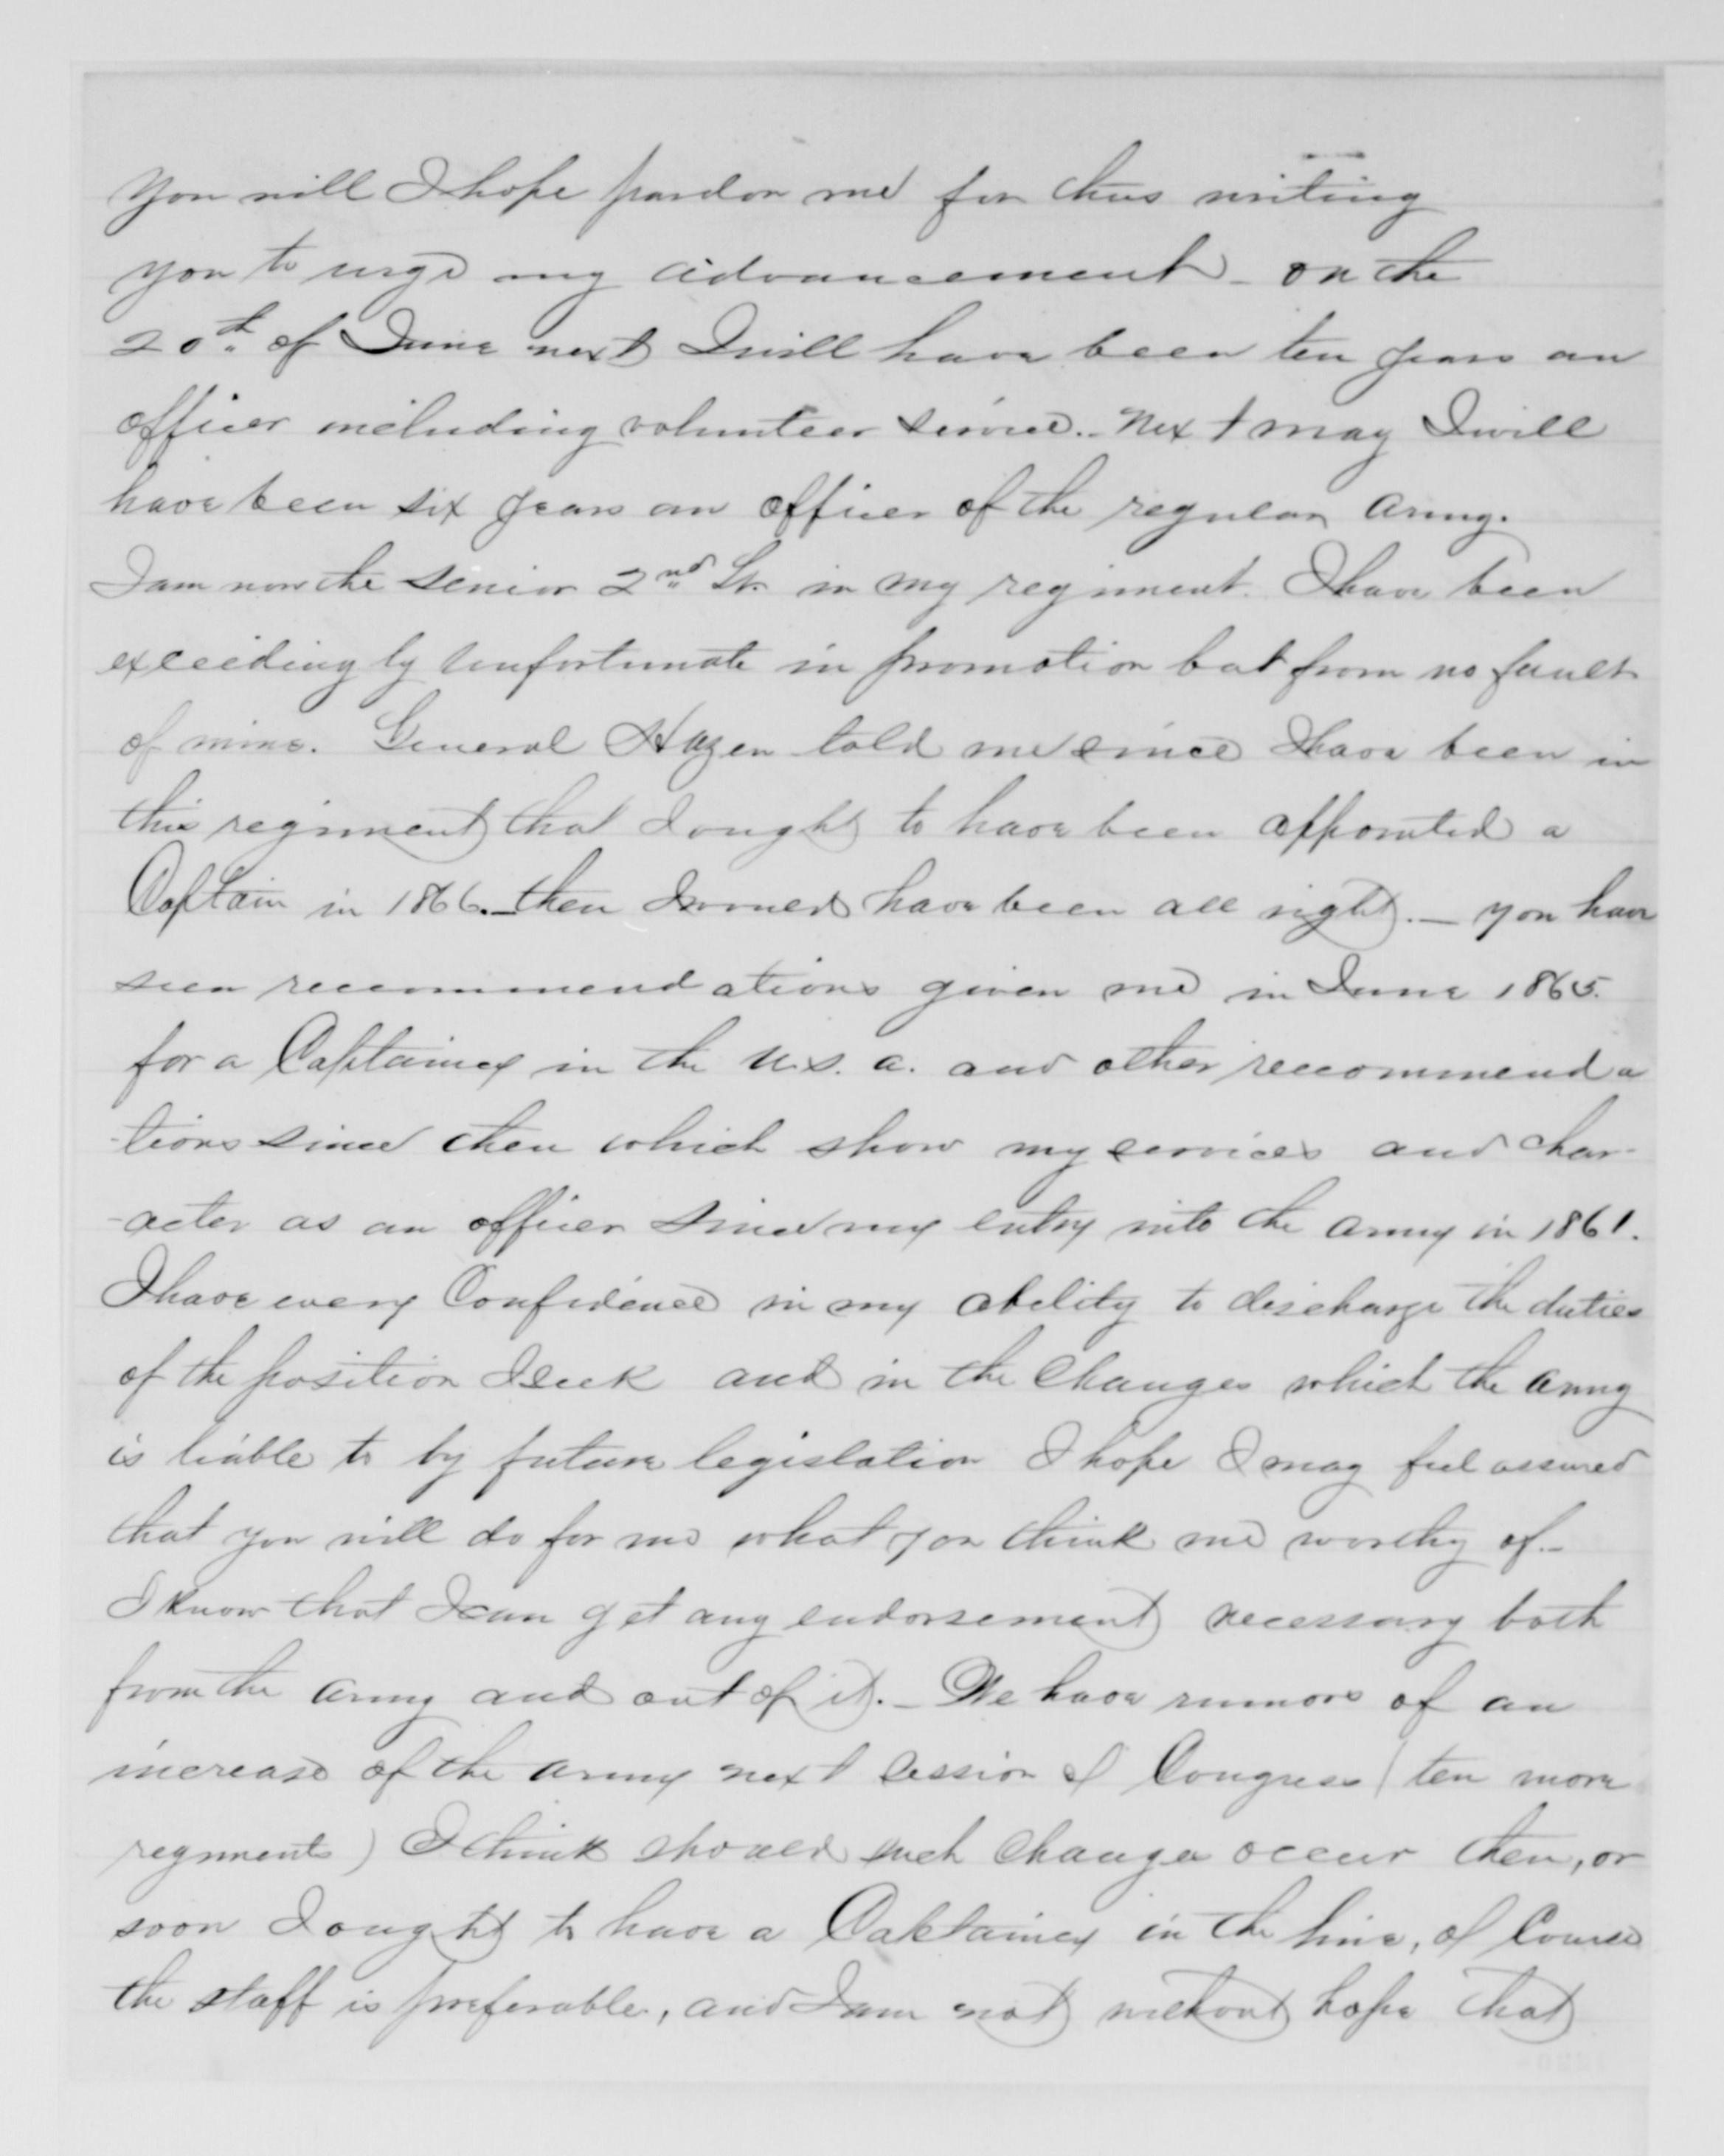 You will I hope pardon me for thus writing
you to urge my advancement - on the
20th. of June next I will have been ten years an
officer including volunteer service. - Next May I will
have been six years an officer of the regular army.
I am now the senior 2nd Lt. in my regiment. I have been
exceedingly unfortunate in promotion but from no fault
of mine. General Hazen told me since I have been in
this regiment that I ought to have been appointed a
Captain in 1866. - then I would have been all right. - you have
seen reccommendations given me in June 1865.
for a Captaincy in the U.S. A. and other reccommenda
-tions since then which show my services and char-
-acter as an officer since my entry into the army in 1861.
I have every Confidence in my ability to discharge the duties
of the position I seek and in the changes which the army
is liable to by future legislation I hope I may feel assured
that you will do for me what you think me worthy of. -
I know that I can get any endorsement necessary both
from the army and out of it. - We have rumors of an
increase of the army next session of Congress (ten more
regiments) I think should such change occur then, or
soon I ought to have a Captaincy in the line, of Course
the staff is preferable, and I am not without hope that